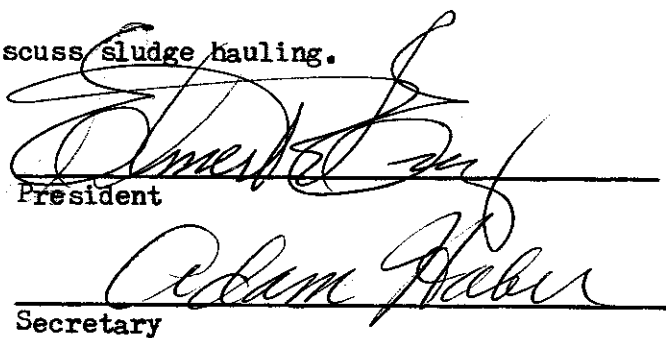 scuss sludge hauling.
Elmer
President
Adam Haber
Secretary